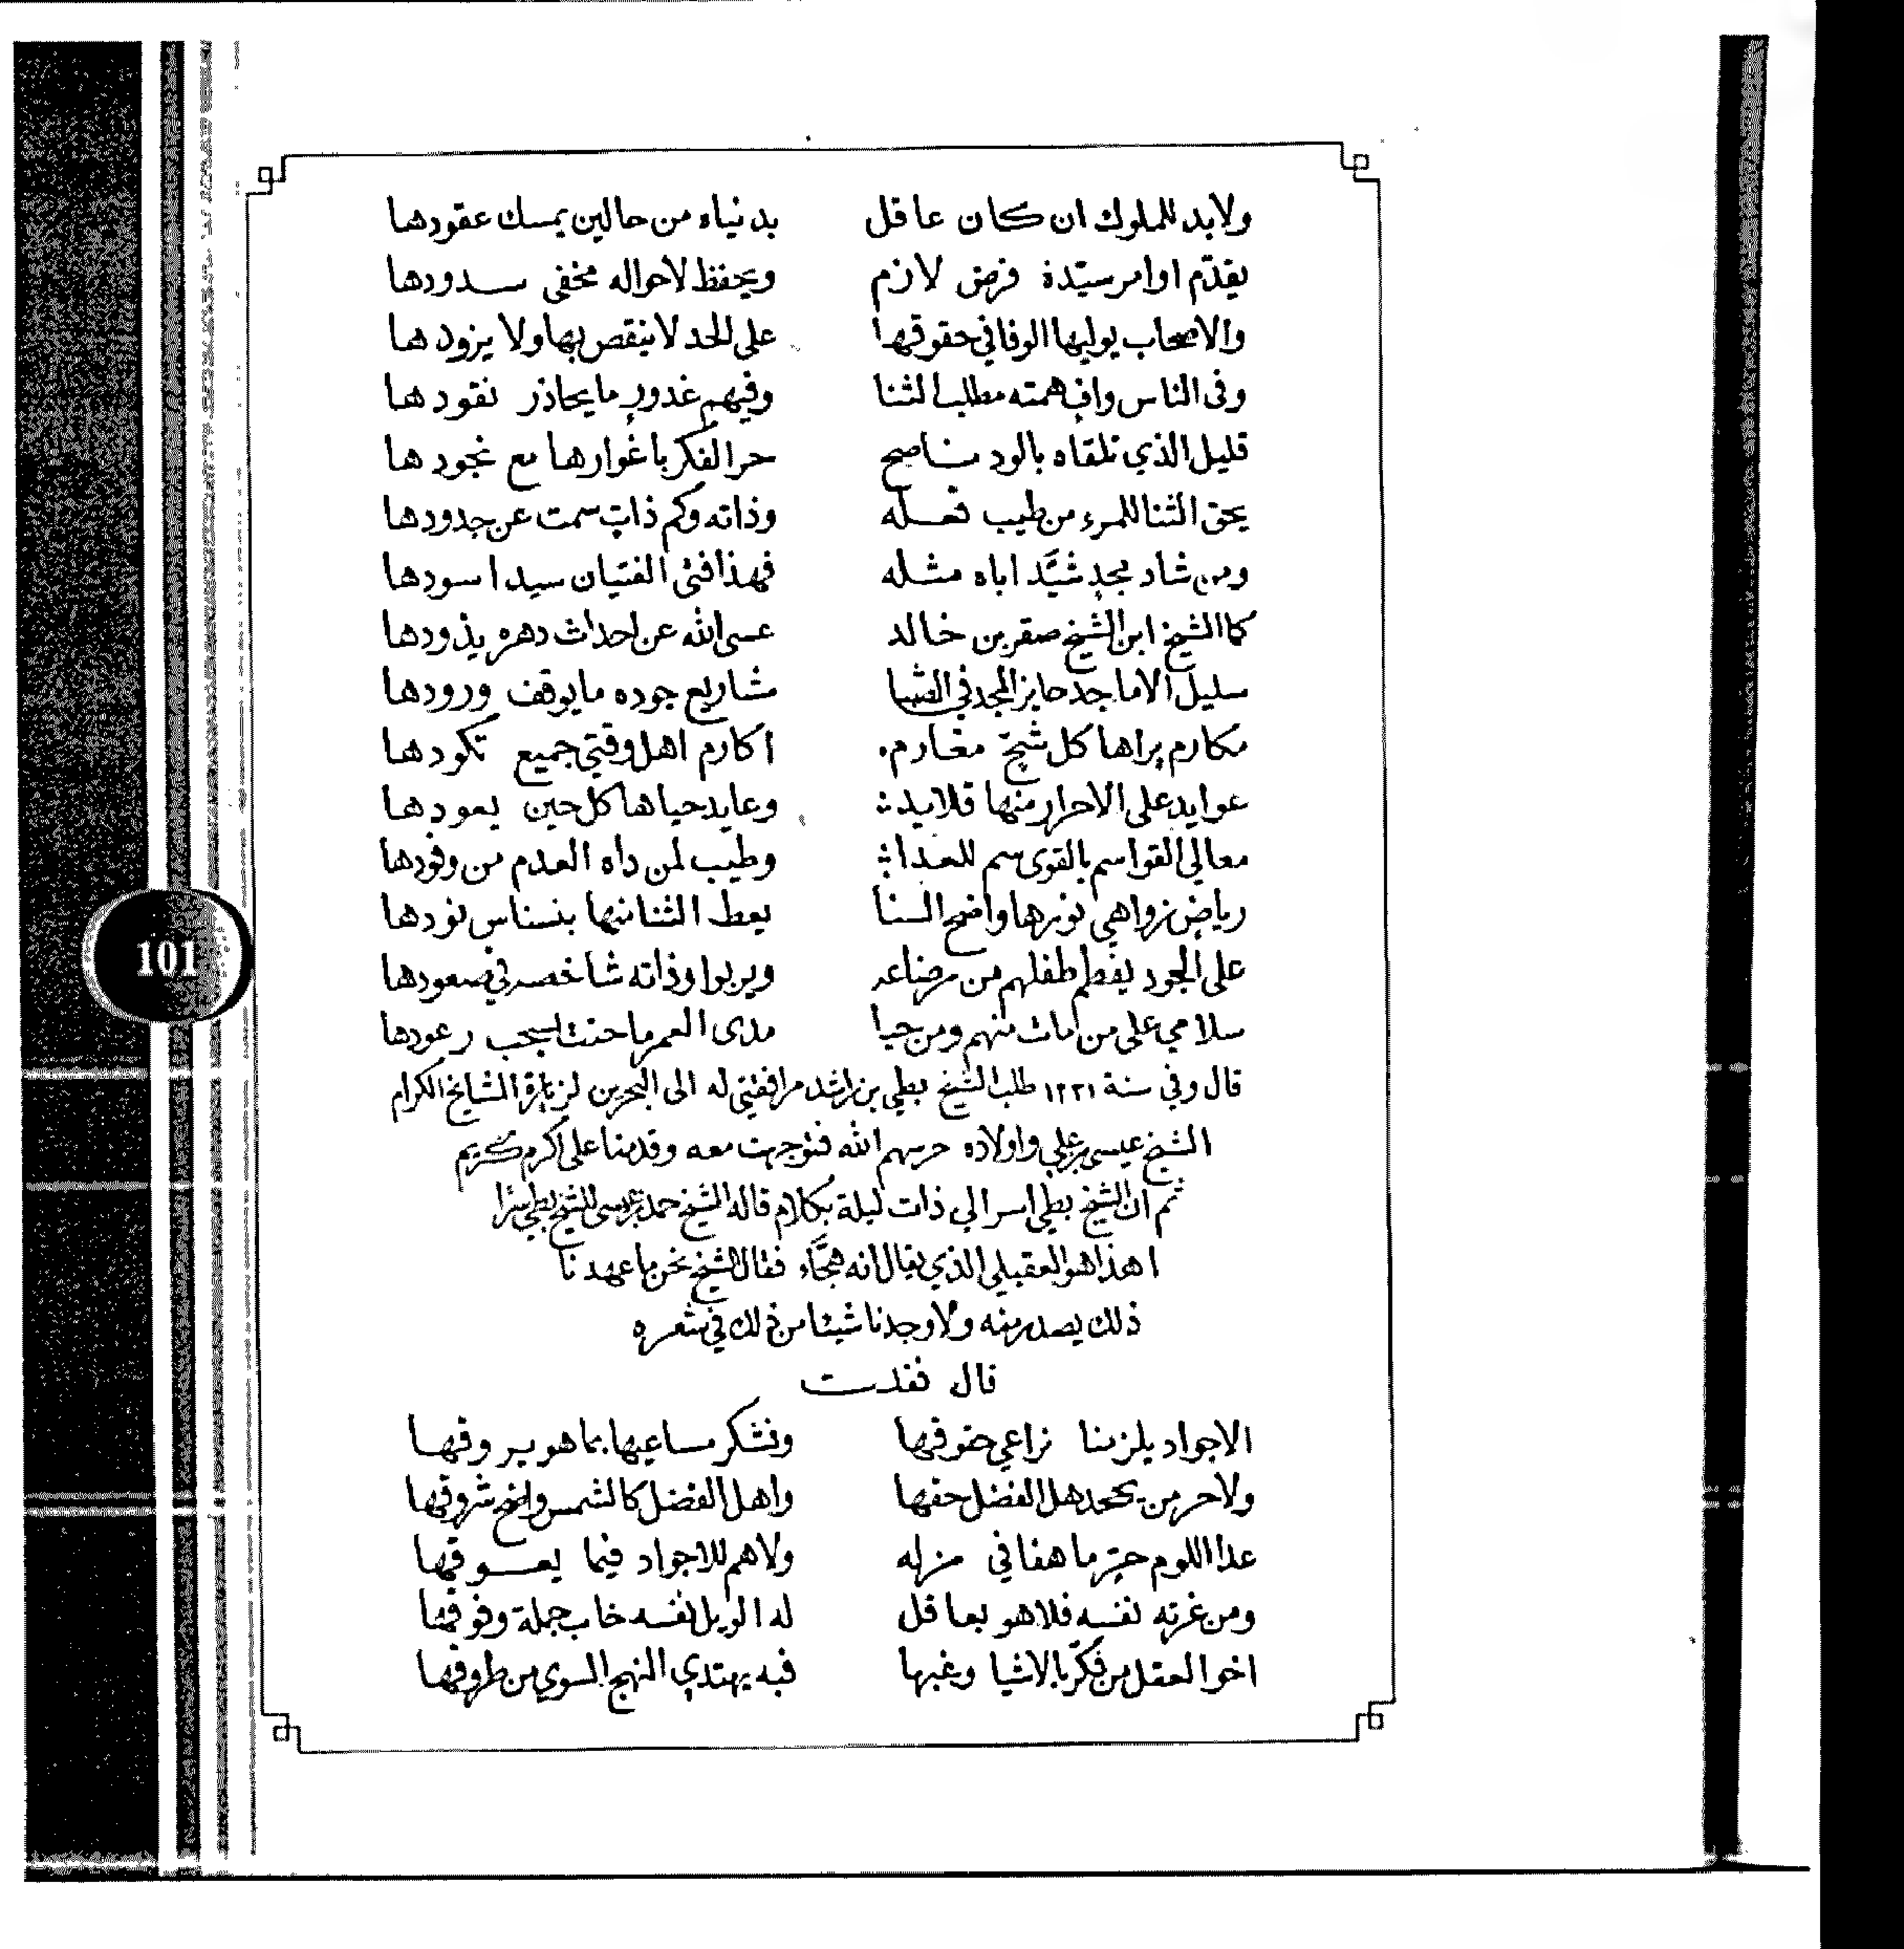 ولابد للملوك ان كان عاقل    بدنياه من حالين يمسك عقودها
يقدّم اوامر سيّدة فرض لازم    ويحفظ لاحواله مخفى سدودها
والاصحاب يوليها الوفا في حقوقها    على الحد لا ينقص بها ولا يزودها
وفى الناس وافٍ همته مطلب الثنا    وفيهم غدورٍ ما يحاذر نقودها
قليل الذي تلقاه بالود ناصح    حر الفكر باغوارها مع نجودها
يحق الثنا للمرء من طيب فعله    وذاته وكم ذاتٍ سمت عن جدودها
ومن شاد مجدٍ شيّد اباه مثله    فهذا فتى الفتيان سيد اسودها
كما الشيخ ابن الشيخ صقر بن خالد    عسى الله عن احداث دهره يذودها
سليل الاماجد حايز المجد في الصبا    مشاريع جوده ما يوقف ورودها
مكارم يراها كل شيخ مغارم    اكارم اهل وقتي جميع تكودها
عوايد على الاحرار منها قلايد    وعايد حياها كل حين يعودها
معالي القواسم بالقوى سم للعدا    وطيب لمن داه العدم من وفودها
رياض زواهي نورها واضح السنا    يعط الثنا منها بنسناس نودها
على الجود يفطم طفلهم من رضاعه    ويربوا وذاته شاخصه في صعودها
سلامي على من مات منهم ومن حيا    مدى العمر ما حنت بسحب رعودها
قال وفي سنة ١٣٣١ طلب الشيخ بطي بن راشد مرافقتي له الى البحرين لزيارة المشايخ الكرام
الشيخ عيسى بن علي واولاده حرسهم الله فتوجهت معه وقدمنا على اكرم كريم
ثم ان الشيخ بطي اسر الي ذات ليلة بكلام قاله الشيخ حمد بن عيسى للشيخ بطي سرا
اهذا هو العقيلي الذي يقال انه هجّاء فقال الشيخ نحن ما عهدنا
ذلك يصدر منه ولا وجدنا شيئا من ذلك في شعره
قال فقدت
الاجواد يلزمنا نراعي حقوقها    ونشكر مساعيها بما هو يروقها
ولا حر من يجحد هل الفضل حقها    واهل الفضل كالشمس واضح شروقها
عدا اللوم حتر ما هفا في مزله    ولاهم للاجواد فيما يعوقها
ومن غرته نفسه فلا هو بعاقل    له الويل نفسه خاب جملة وفوقها
اخوا العقل من فكّر بالاشيا وغبها    فبه يهتدي النهج السوي من طروقها
101